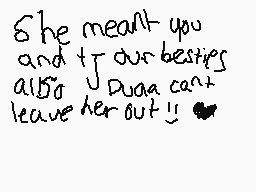 She meant you
and ty our besties
also Duaa can't
leave her out !! ♥